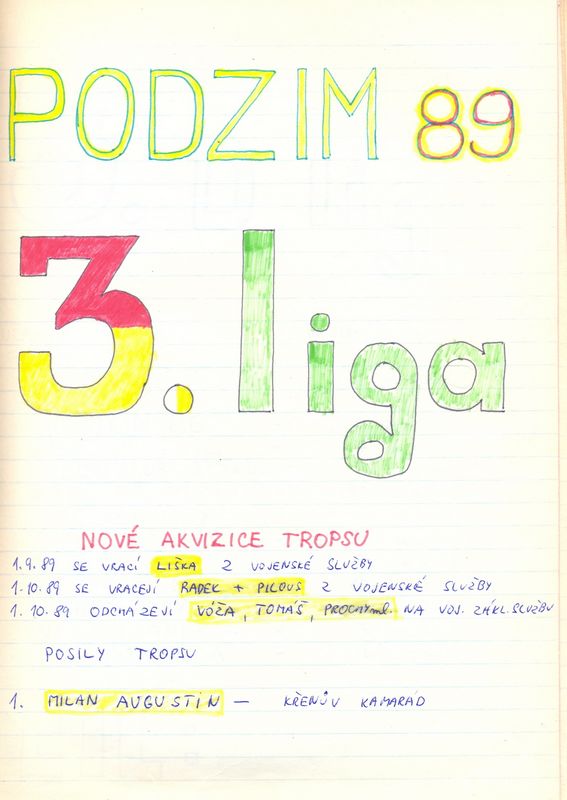 PODZIM 89
3. liga
NOVÉ AKVIZICE TROPSU
1.9.89 SE VRACÍ LIŠKA Z VOJENSKÉ SLUŽBY
1.10.89 SE VRACEJÍ RADEK + PILOUS Z VOJENSKÉ SLUŽBY
1.10.89 ODCHÁZEJÍ VÓŽA, TOMÁŠ, PROCHY ml. NA VOJ. ZÁKL. SLUŽBU
POSILY TROPSU
1. MILAN AUGUSTIN — KŘENŮV KAMARÁD